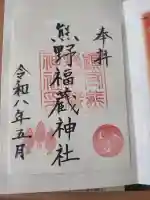 奉拝
熊野福藏神社
令和八年五月